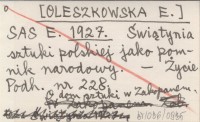 [OLESZKOWSKA E.]
SAS E. 1927. Świątynia
sztuki polskiej jako pom-
nik narodowy. — Życie
Podh. nr 228.
O dom sztuki w Zakopanem.